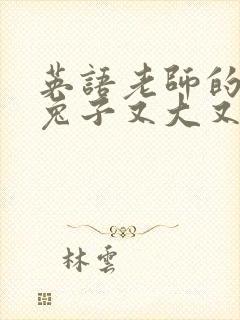 英語老師的
兔子又大又
林雲